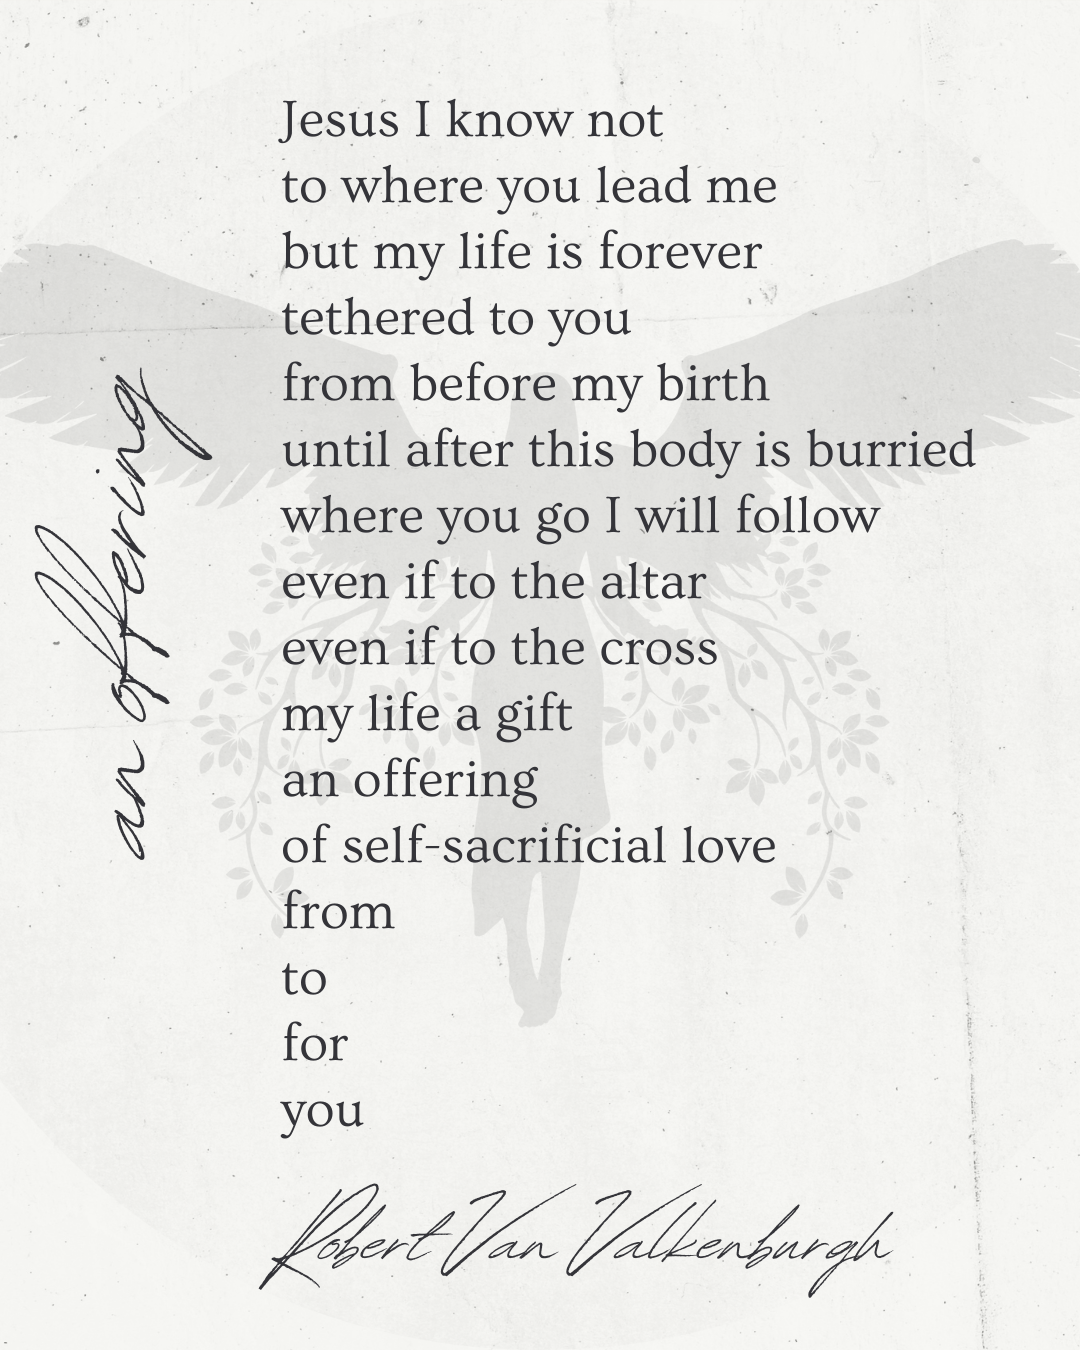 an offering
Jesus I know not
to where you lead me
but my life is forever
tethered to you
from before my birth
until after this body is burried
where you go I will follow
even if to the altar
even if to the cross
my life a gift
an offering
of self-sacrificial love
from
to
for
you
Robert Van Valkenburgh